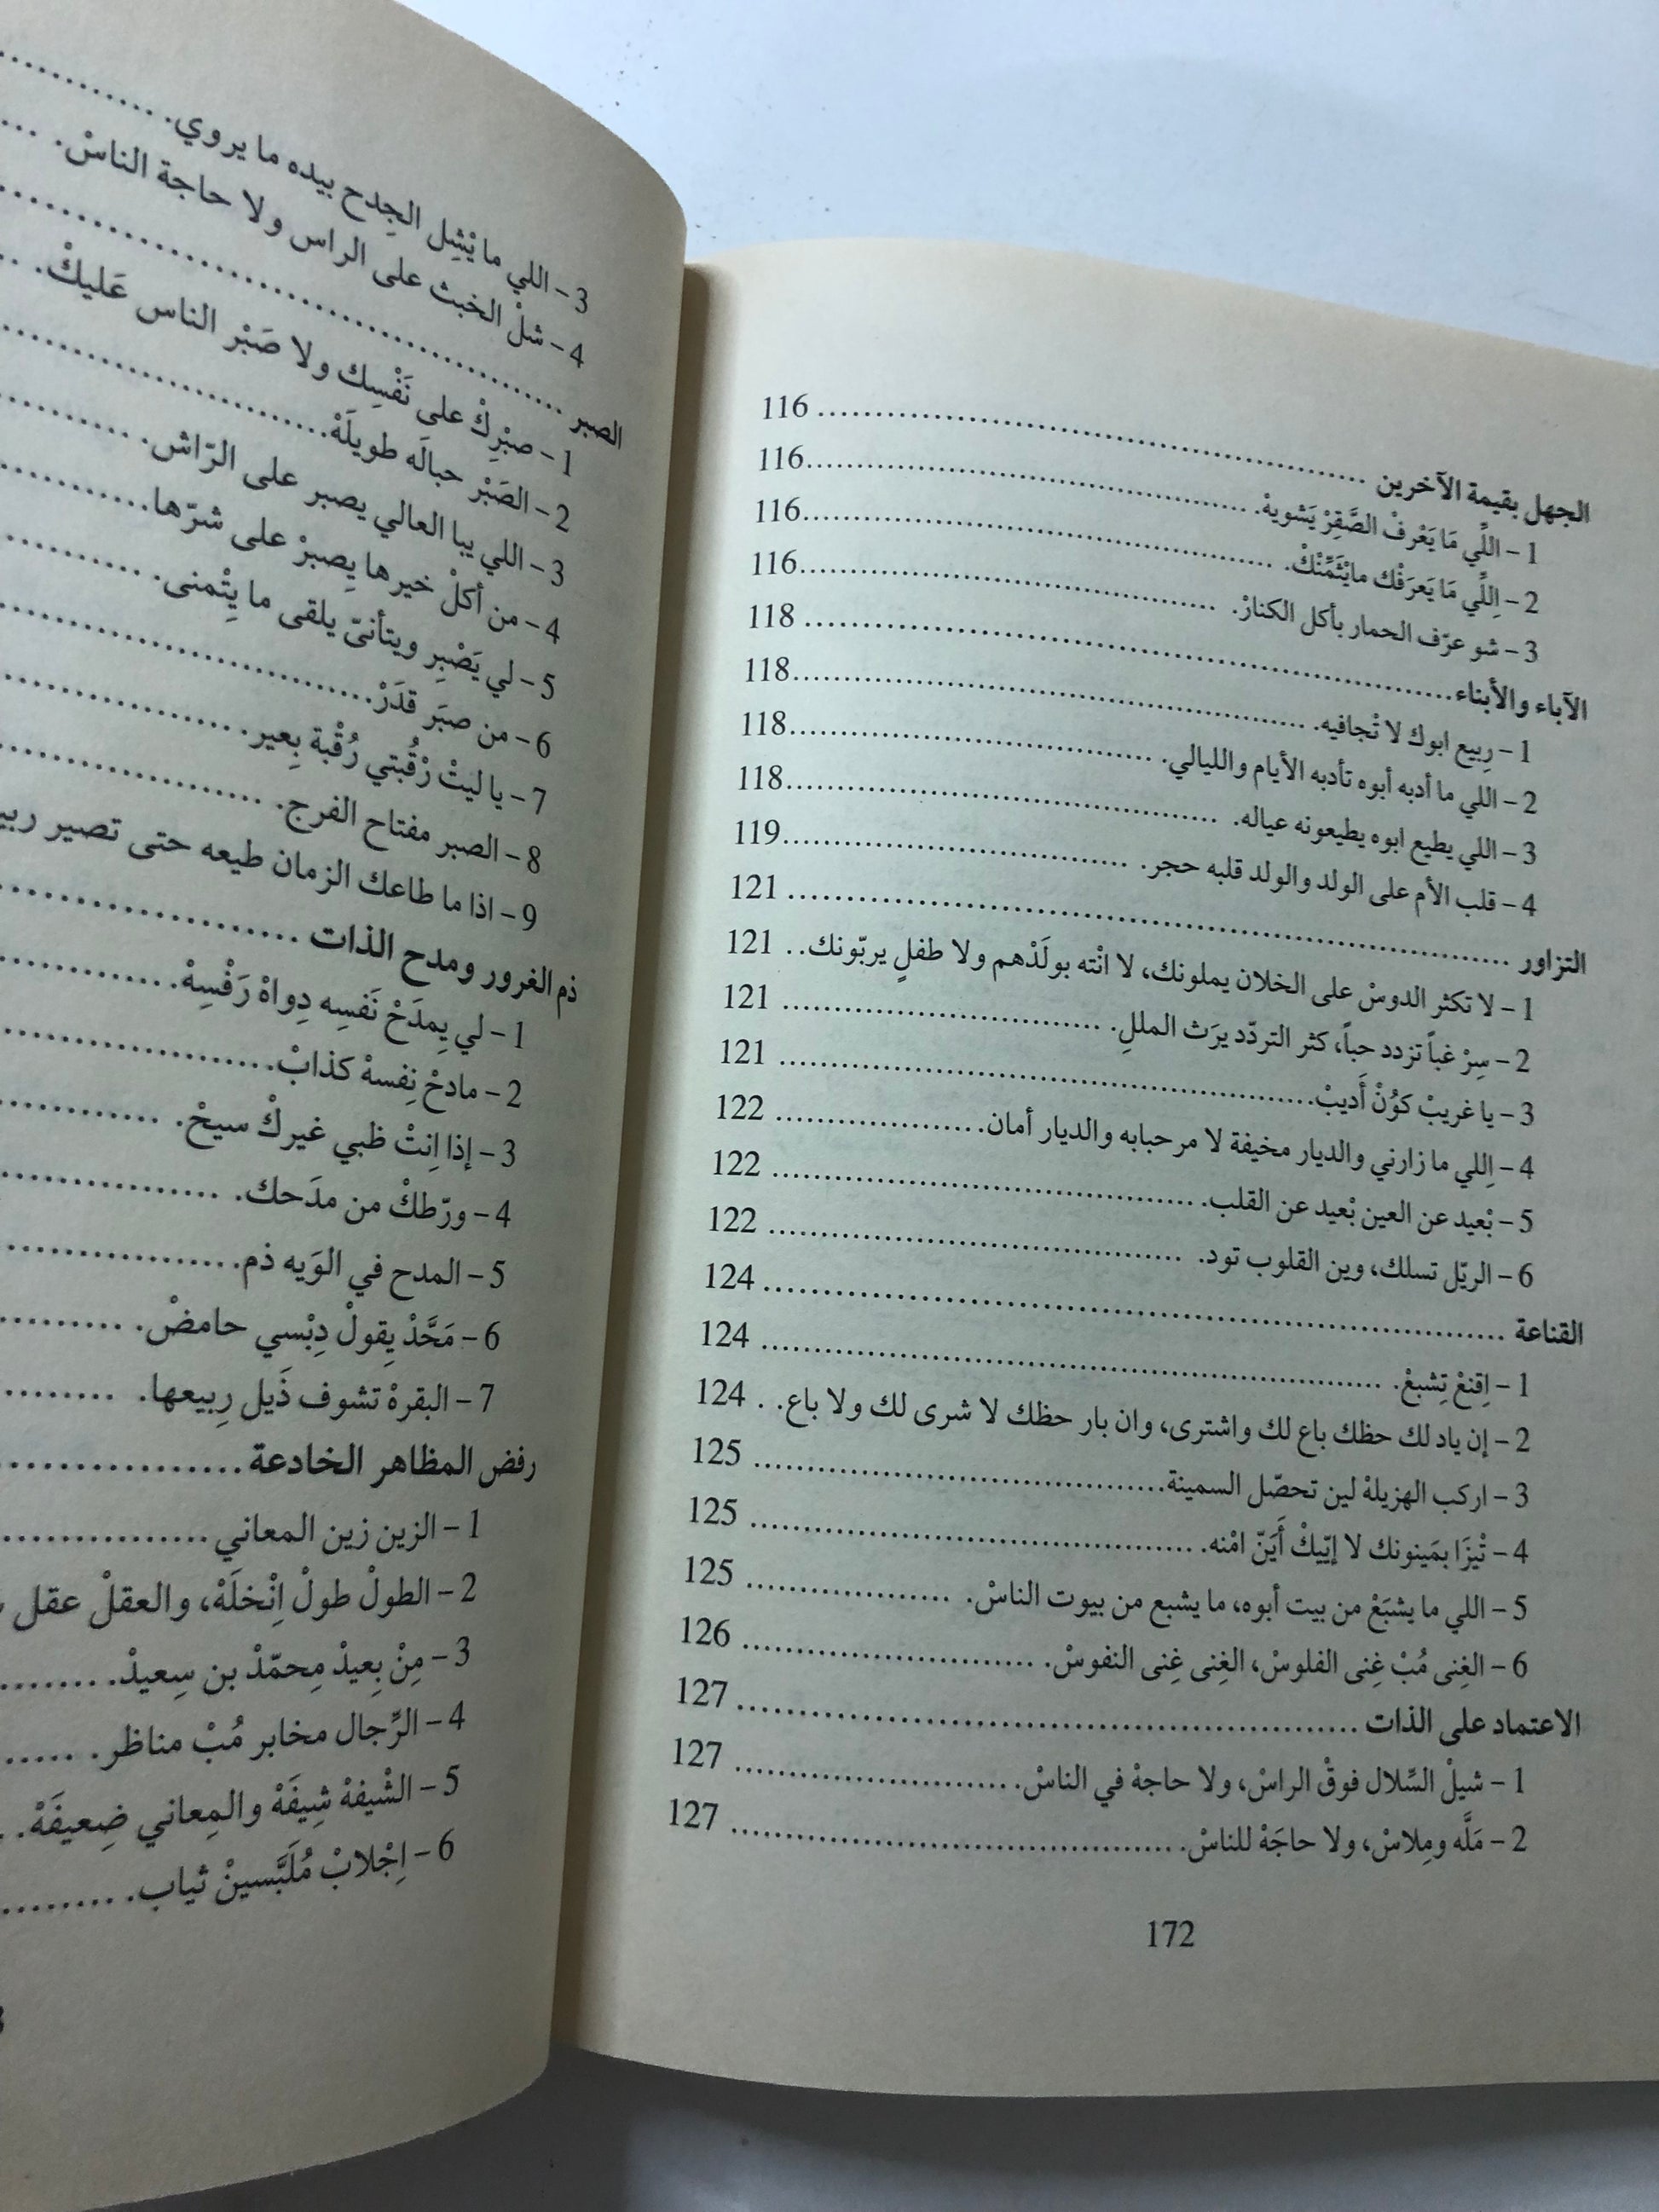 الجهل بقيمة الآخرين ........ 116
1 - اللِّي مَا يَعْرفْ الصَّقِرْ يَشويهْ. ........ 116
2 - اِللِّي مَا يَعرَفْك مايْثَمِّنْكْ. ........ 116
3 - شو عرّف الحمار بأكل الكنارْ. ........ 116
الآباء والأبناء ........ 118
1 - رِبيع ابوك لا تْجافيه. ........ 118
2 - اللي ما أدبه أبوه تأدبه الأيام والليالي. ........ 118
3 - اللي يطيع ابوه يطيعونه عياله. ........ 118
4 - قلب الأم على الولد والولد قلبه حجر. ........ 119
التزاور ........ 121
1 - لا تكثر الدوسْ على الخلان يملونك، لا انْته بولَدْهم ولا طفلٍ يربّونك.. 121
2 - سِرْ غباً تزدد حباً، كثر التردّد يرَث المللِ. ........ 121
3 - يا غريبْ كوُنْ أَديبْ. ........ 121
4 - اِللي ما زارني والديار مخيفة لا مرحبابه والديار أمان. ........ 122
5 - بْعيد عن العين بْعيد عن القلب. ........ 122
6 - الريّل تسلك، وين القلوب تود. ........ 122
القناعة ........ 124
1 - اِقنعْ تِشبعْ. ........ 124
2 - إن ياد لك حظك باع لك واشترى، وان بار حظك لا شرى لك ولا باع. . 124
3 - اركب الهزيلهْ لين تحصّل السمينة. ........ 125
4 - تْيزَا بمَينونك لا إيّيكْ أَيَنّ امْنه. ........ 125
5 - اللي ما يشبَعْ من بيت أبوه، ما يشبع من بيوت الناسْ. ........ 125
6 - الغِنى مُبْ غِنى الفلوسْ، الغِنى غِنى النفوسْ. ........ 126
الاعتماد على الذات ........ 127
1 - شيلْ السِّلال فوقْ الراسْ، ولا حاجهْ في الناسْ. ........ 127
2 - مَلَّه ومِلاسْ، ولا حاجَهْ للناسْ. ........ 127
172
3 - اللي ما يْشِل الجِدح بيده ما يروي. ........
4 - شلْ الخبث على الراس ولا حاجة الناسْ. ....
الصبر ........
1 - صبْرِكْ على نَفْسِك ولا صَبْر الناس عَليكْ. ..
2 - الصَبْر حبالَه طويلَهْ. ........
3 - اللي يبا العالي يصبر على الرّاش. ........
4 - من أكلْ خيرها يِصبرْ على شرّها. ........
5 - لي يَصْبِر ويتأنىّ يلقى ما يِتْمنى. ........
6 - من صبَر قدَرْ. ........
7 - يا ليتْ رْقُبتي رُقْبة بِعير. ........
8 - الصبر مفتاح الفرج. ........
9 - اذا ما طاعك الزمان طيعه حتى تصير
ذم الغرور ومدح الذات ........
1 - لي يِمدَحْ نَفسِه دِواهْ رَفْسِهْ. ........
2 - مادحْ نِفسهْ كذابْ. ........
3 - إذا اِنتْ ظبي غيركْ سيحْ. ........
4 - ورّطكْ من مدَحك. ........
5 - المدح في الوَيه ذم. ........
6 - مَحَّدْ يِقولْ دِبْسي حامضْ. ........
7 - البقرهْ تشوف ذَيل رِبيعها. ........
رفض المظاهر الخادعة ........
1 - الزين زين المعاني ........
2 - الطولْ طولْ اِنْخلَهْ، والعقلْ عقل
3 - مِنْ بِعيدْ مِحمّدْ بن سِعيدْ. ........
4 - الرِّجال مخابر مُبْ مناظر. ......
5 - الشْيفهْ شِيفَهْ والمِعاني ضِعيفَهْ. ..
6 - اِجْلابْ مُلَبَّسينْ ثياب. ........